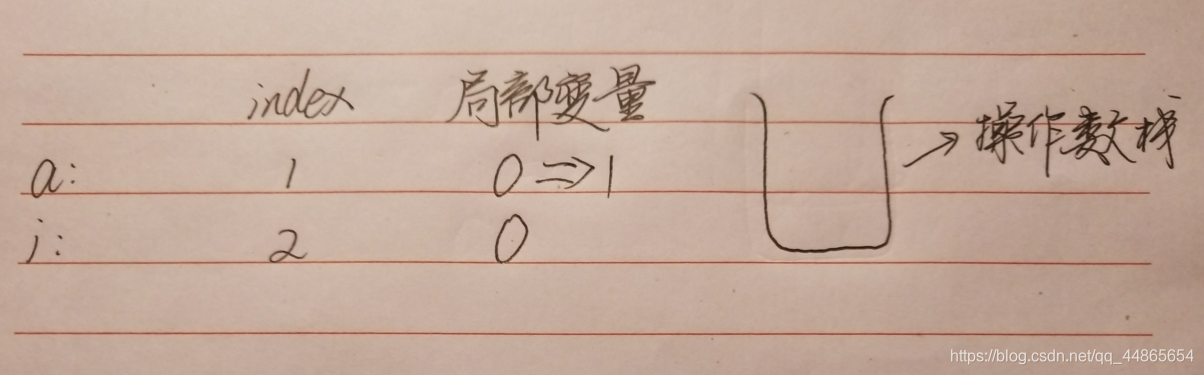 index 局部变量
→操作数栈
a: 1 0⇒1
j: 2 0
https://blog.csdn.net/qq_44865654